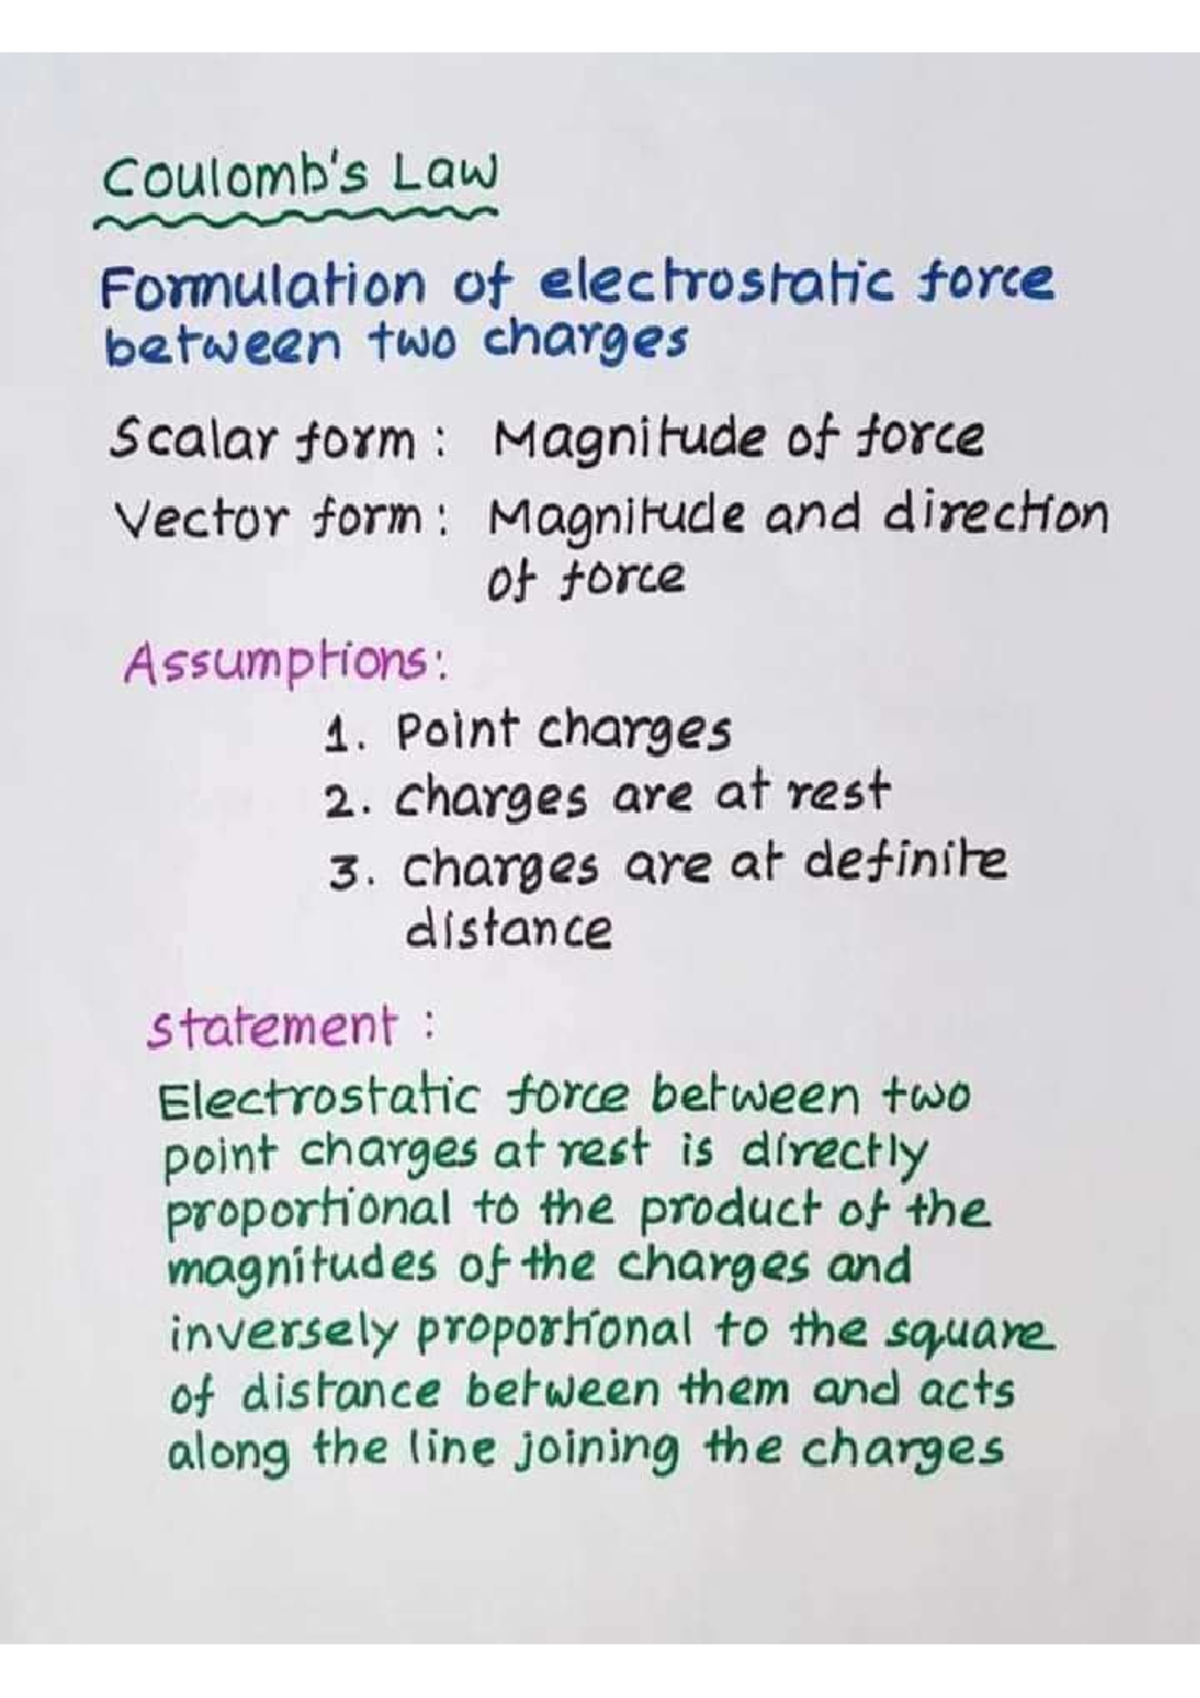 Coulomb's Law
Formulation of electrostatic force
between two charges
Scalar form : Magnitude of force
Vector form : Magnitude and direction
of force
Assumptions:
1. Point charges
2. charges are at rest
3. charges are at definite
distance
statement :
Electrostatic force between two
point charges at rest is directly
proportional to the product of the
magnitudes of the charges and
inversely proportional to the square
of distance between them and acts
along the line joining the charges